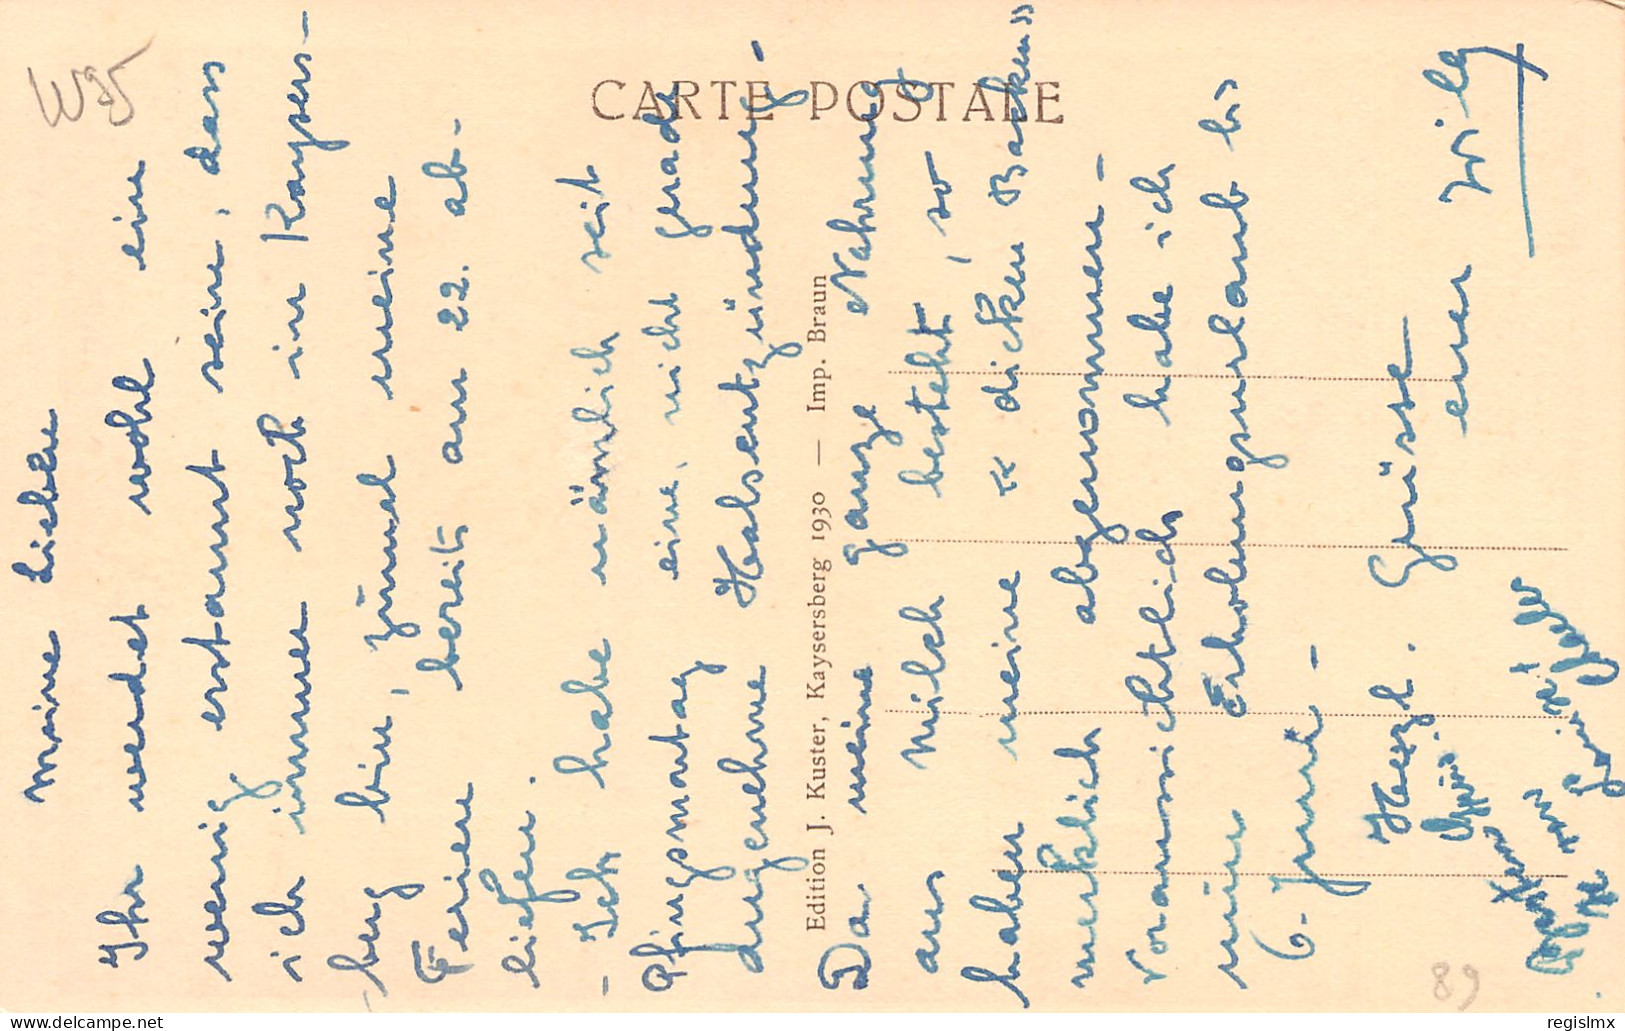 CARTE POSTALE
Edition J. Kuster, Kaysersberg 1930 — Imp. Braun
Meine Lieben
Ihr werdet wohl ein
wenig erstaunt sein, dass
ich immer noch in Kaysers-
berg bin, zumal meine
Ferien bereits am 22. ab-
liefen.
- Ich habe nämlich seit
Pfingsmontag eine, nicht gerade
angenehme Halsentzündung.
Da meine ganze Nahrung
aus Milch besteht, so
haben meine « dicken Backen »
merklich abgenommen -
Voraussichtlich habe ich
nun Erholungsurlaub bis
6. Juni -
Herzl. Grüsse
euer Willy
89
regislmx